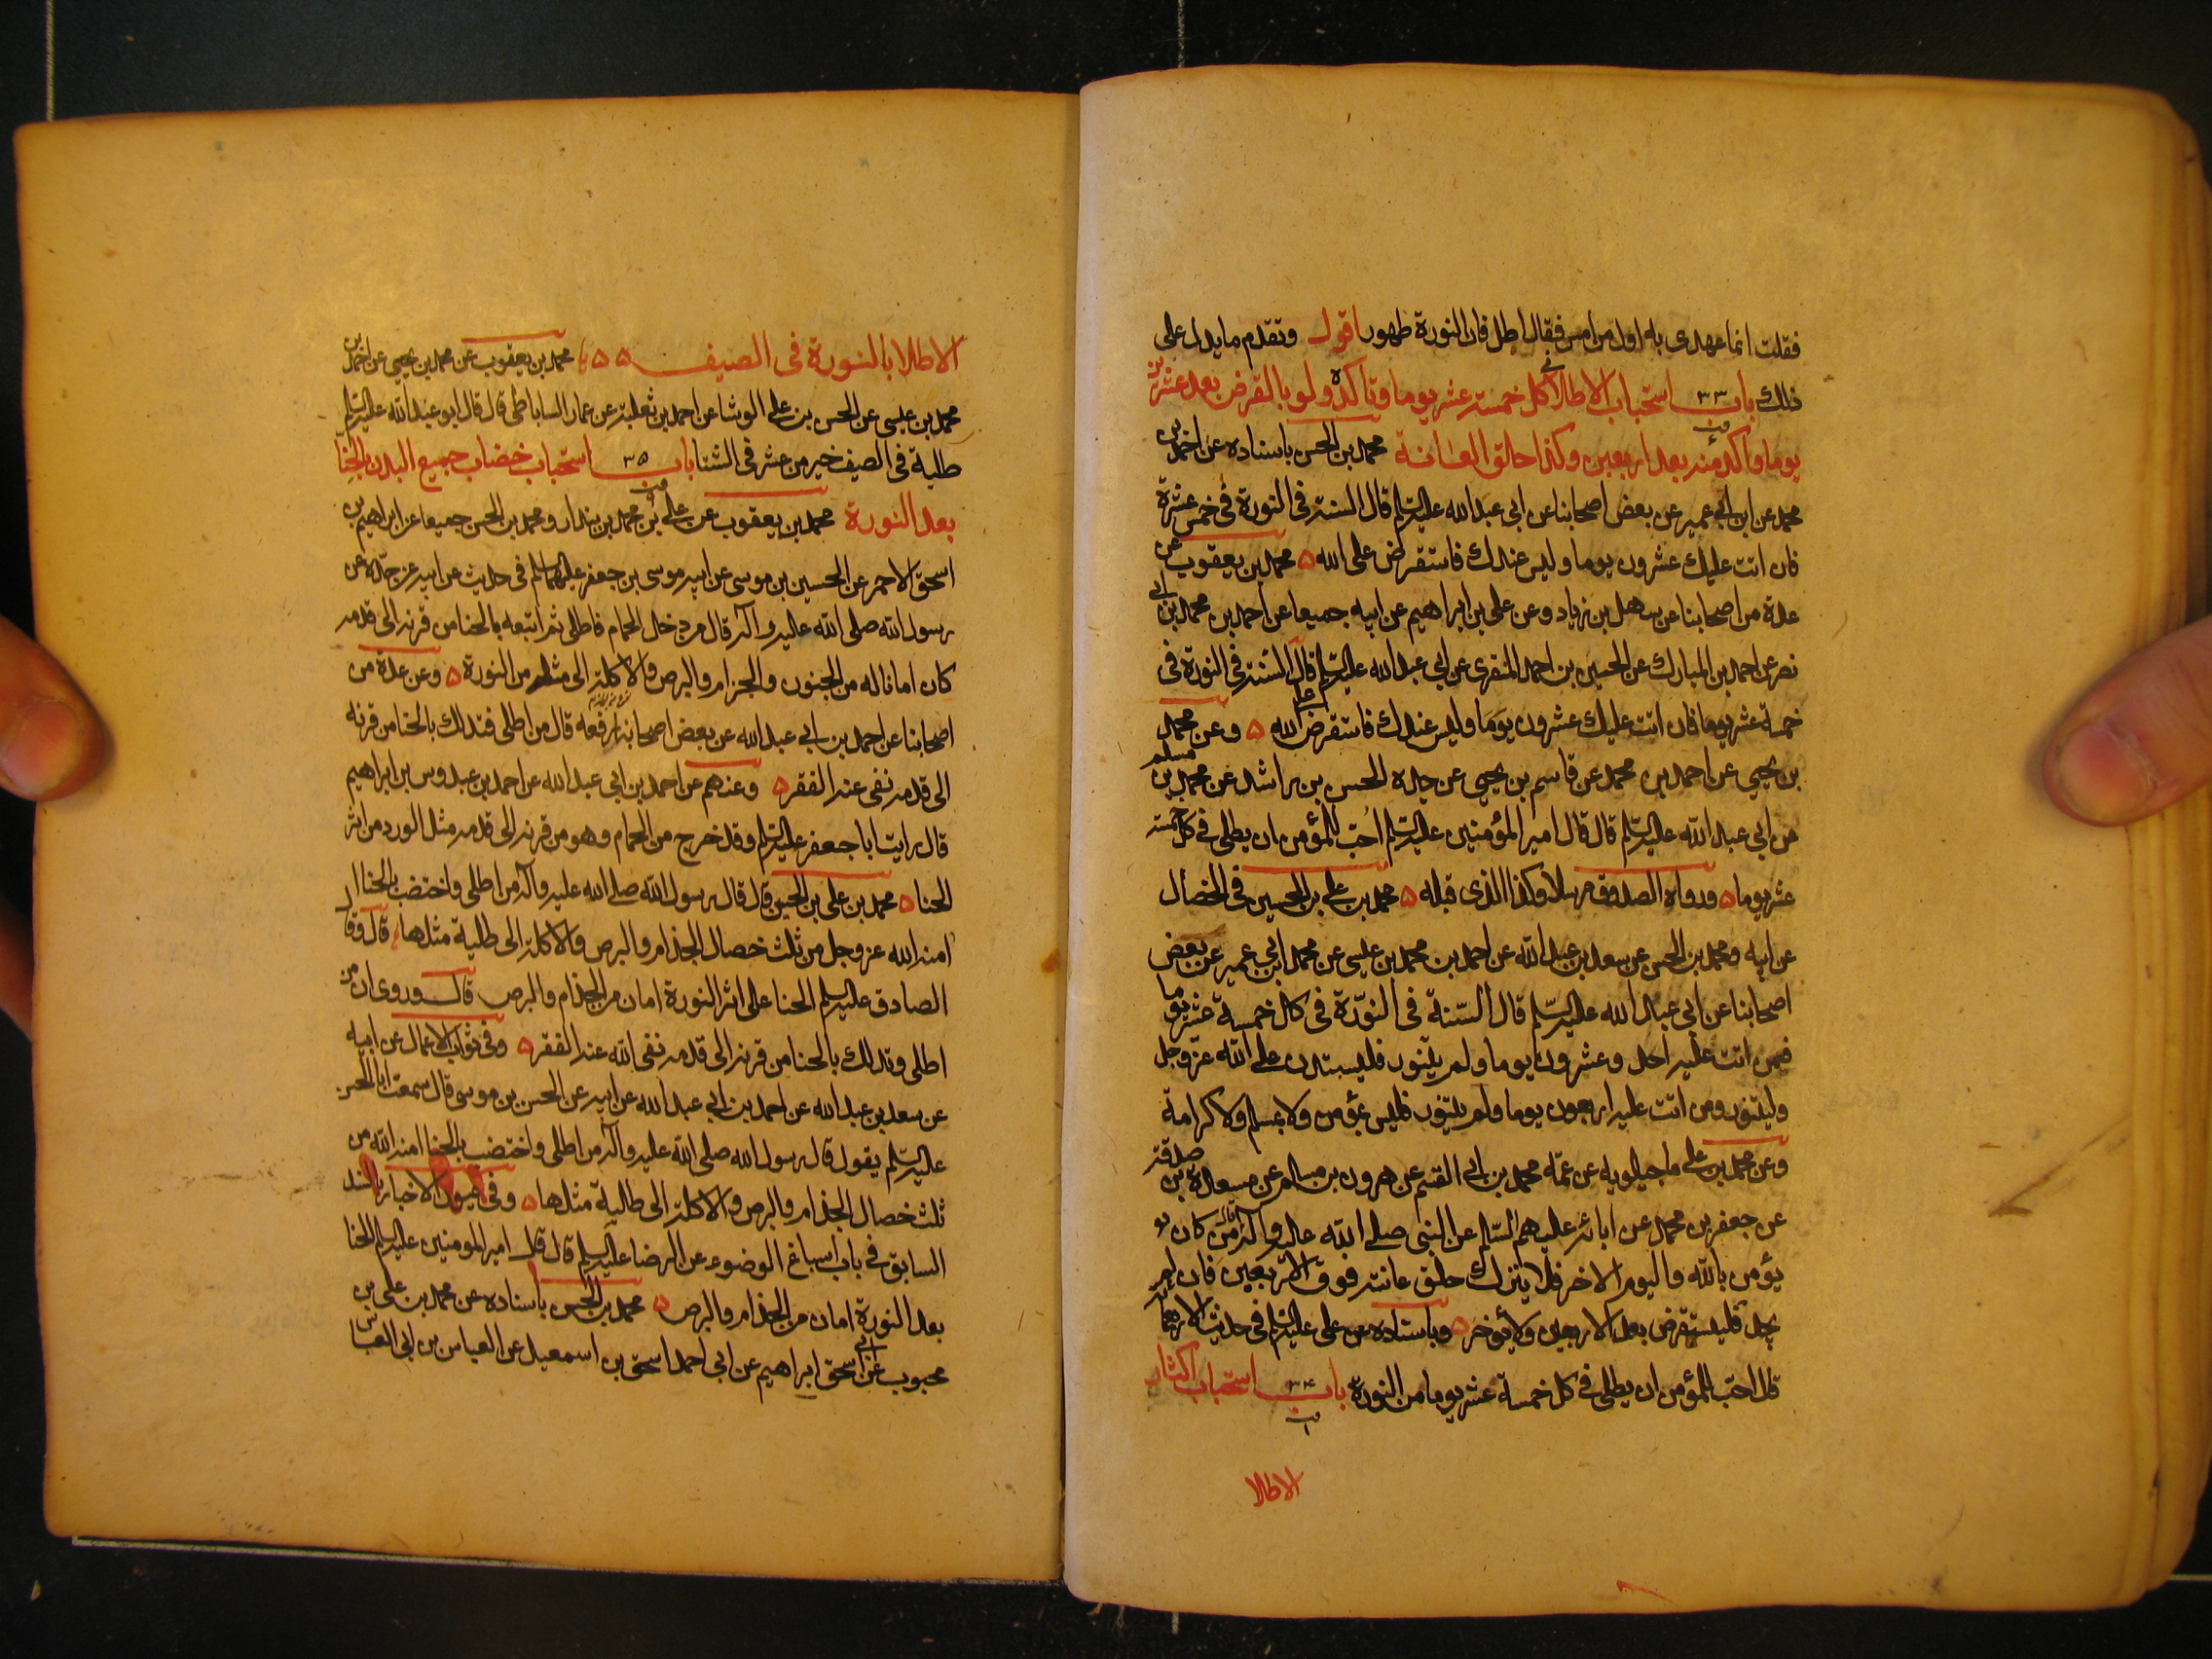 فقلت انما عهدى به اول من امس فقال اطل فان النورة طهور اقول وتقدم ما يدل على
ذلك باب ٣٣ استحباب الاطلا فى كل خمسة عشر يوما وتاكده ولو بالقرض بعد عشرين
يوما واكد منه بعد اربعين وكذا حلق العانة محمد بن الحسن باسناده عن احمد بن
محمد عن ابن ابي عمير عن بعض اصحابنا عن ابى عبد الله عليه السلم قال السنة فى النورة فى خمس عشرة
فان اتت عليك عشرون يوما وليس عندك فاستقرض على الله ۵ محمد بن يعقوب عن
عدة من اصحابنا عن سهل بن زياد وعن على بن ابراهيم عن ابيه جميعا عن احمد بن محمد بن ابي
نصر عن احمد بن المبارك عن الحسين بن احمد المنقرى عن ابي عبد الله عليه السلم قال السنة فى النورة فى
خمسة عشر يوما فان اتت عليك عشرون يوما وليس عندك فاستقرض على الله ۵ وعن محمد
بن يحيى عن احمد بن محمد عن قاسم بن يحيى عن جده الحسن بن راشد عن محمد بن مسلم
عن ابي عبد الله عليه السلم قال قال امير المؤمنين عليه السلم احب للمؤمن ان يطلى فى كل خمسة
عشر يوما ۵ ورواه الصدوق مرسلا وكذا الذى قبله ۵ محمد بن علي بن الحسين فى الخصال
عن ابيه ومحمد بن الحسن عن سعد بن عبد الله عن احمد بن محمد بن عيسى عن محمد ابن ابي عمير عن بعض
اصحابنا عن ابي عبد الله عليه السلم قال السنة فى النورة فى كل خمسة عشر يوما
فمن اتت عليه احد وعشرون يوما ولم يتنور فليستدن على الله عز وجل
وليتنور ومن اتت عليه اربعون يوما ولم يتنور فليس بمؤمن ولا بمسلم ولا كرامة
وعن محمد بن علي ماجيلويه عن عمه محمد بن ابي القسم عن هرون بن مسلم عن مسعدة بن صدقة
عن جعفر بن محمد عن ابائه عليهم السلم عن النبى صلى الله عليه وآله قال من كان
يؤمن بالله واليوم الاخر فلا يترك حلق عانته فوق الاربعين فان لم
يجد فليستقرض بعد الاربعين ولا يؤخر ۵ وباسناده عن على عليه السلم فى حديث الاربعمائة
قال احب للمؤمن ان يطلى فى كل خمسة عشر يوما من النورة باب ٣٤ استحباب اكثار
الاطلا
الاطلا بالنورة فى الصيف محمد بن يعقوب عن محمد بن يحيى عن احمد بن
محمد بن عيسى عن الحسن بن علي الوشا عن احمد بن ثعلبة عن عمار الساباطى قال قال ابو عبد الله عليه السلم
طلية فى الصيف خير من عشر فى الشتا باب ٣٥ استحباب خضاب جميع البدن بالحنا
بعد النورة محمد بن يعقوب عن على بن محمد بن بندار ومحمد بن الحسن جميعا عن ابراهيم بن
اسحق الاحمر عن الحسين بن موسى عن ابيه موسى بن جعفر عليهما السلم فى حديث عن ابيه عن جده عن
رسول الله صلى الله عليه وآله قال من دخل الحمام فاطلى ثم اتبعه بالحنا من قرنه الى قدمه
كان امانا له من الجنون والجزام والبرص والاكلة الى مثله من النورة ۵ وعن عدة من
اصحابنا عن احمد بن ابي عبد الله عن بعض اصحابنا رفعه قال من اطلى فتدلك بالحنا من قرنه
الى قدمه نفى عنه الفقر ۵ وعنهم عن احمد بن ابي عبد الله عن احمد بن عبدوس بن ابراهيم
قال رايت ابا جعفر عليه السلم وقد خرج من الحمام وهو من قرنه الى قدمه مثل الورد من اثر
الحنا ۵ محمد بن على بن الحسين قال قال رسول الله صلى الله عليه وآله من اطلى واختضب بالحنا
امنه الله عز وجل من ثلث خصال الجذام والبرص والاكلة الى طلية مثلها قال وقال
الصادق عليه السلم الحنا على اثر النورة امان من الجذام والبرص قال وروى ان من
اطلى وتدلك بالحنا من قرنه الى قدمه نفى الله عنه الفقر ۵ وفى ثواب الاعمال عن ابيه
عن سعد بن عبد الله عن احمد بن ابي عبد الله عن ابيه عن الحسن بن موسى قال سمعت ابا الحسن
عليه السلم يقول قال رسول الله صلى الله عليه وآله من اطلى واختضب بالحنا امنه الله من
ثلث خصال الجذام والبرص والاكلة الى طلية مثلها ۵ وفى عيون الاخبار بالسند
السابق فى باب اسباغ الوضوء عن الرضا عليه السلم قال قال امير المومنين عليه السلم الحنا
بعد النورة امان من الجذام والبرص ۵ محمد بن الحسن باسناده عن محمد بن على بن
محبوب عن ابي اسحق ابراهيم عن ابي احمد اسحق بن اسمعيل عن العباس بن ابي العباس